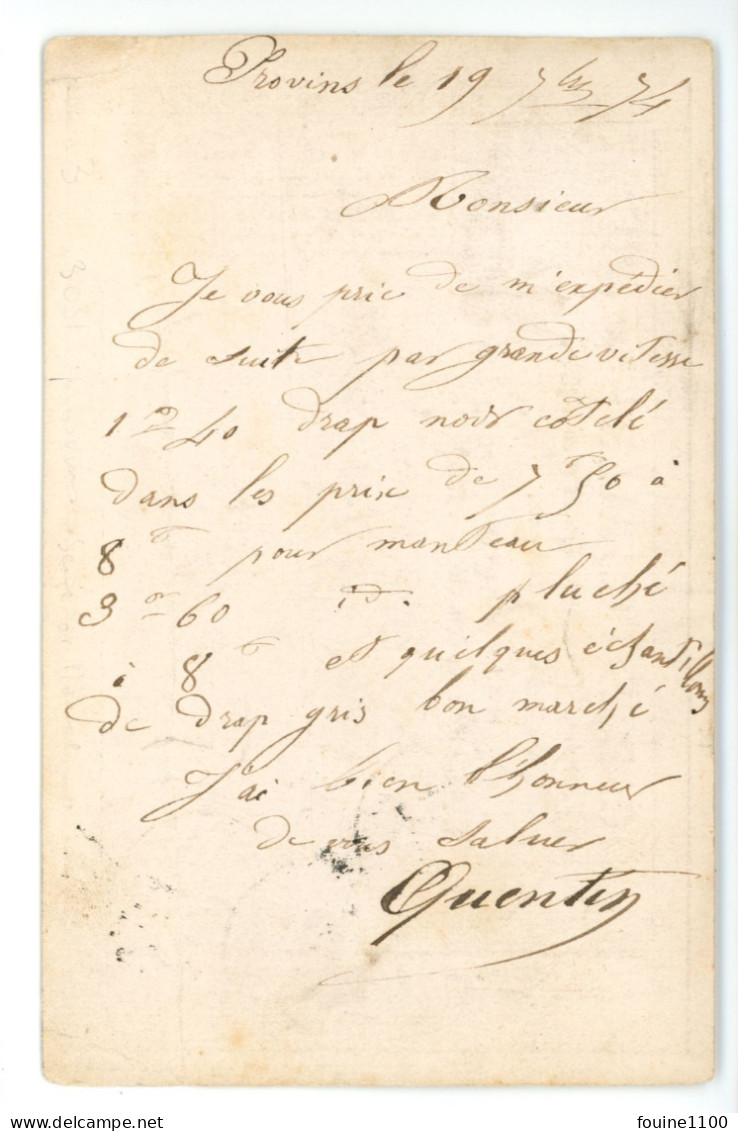 Provins le 19 7bre 74
Monsieur
Je vous prie de m'expédier
de suite par grande vitesse
1m 40 drap noir côtelé
dans les prix de 7f 50 à
8f pour manteau
3m 60 d° pluché
à 8f et quelques échantillons
de drap gris bon marché
J'ai bien l'honneur
de vous saluer
Quentin
www.delcampe.net
fouine1100